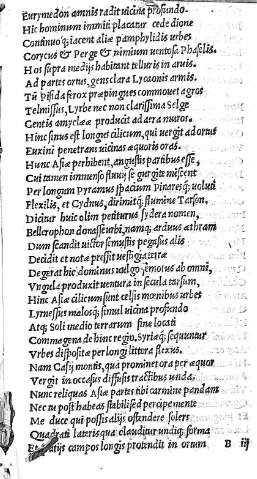 Eurymedon amnis radit uicina profundo.
Hic hominum immiti placatur cede dione
Continuoq; iacent aliæ pamphylidis urbes
Corycus & Perge & nimium uentosa Phaselis.
Hos supra medijs habitant telluris in aruis.
Ad partes ortus, gens clara Lycaonis armis.
Tũ pisidæ ferox præpingues commouet agros
Telmissus, Lyrbe nec non clarissima Selge
Gentis amyclææ producit ad æra muros.
Hinc sinus est longus cilicum, qui uergit ad ortus
Euxini penetrans uicinas æquoris oras.
Hunc Asiæ perhibent, angustis partibus esse,
Cui tamen immenso fluuij se gurgite miscent
Per longum Pyramus spacium Pinaresq; uoluti
Flexilis, et Cydnus, dirimitq; flumine Tarson,
Dicitur huic olim petiturus sydera nomen,
Bellerophon donasse urbi, namq; arduus æthram
Dum scandit uictor semustis pegasus alis
Decidit et note pressit uestigia terræ
Degerat hic dominus uulgo remotus ab omni,
Vngula produxit uentura in secula tarsum,
Hinc Asiæ cilicum sunt celsis mœnibus urbes
Lyrnessus malosq; simul uicina profundo
Atq; Soli medio terrarum sine locati
Commagena de hinc regio. Syriæq; sequuntur
Vrbes dispositæ per longi littora flexus.
Nam Casij montis, qua prominet ora per æquor
Vergit in occasus diffusis tractibus unda.
Nunc reliquas Asiæ partes tibi carmine pandam
Nec tu post habeas stabilisq; percipe mente
Me duce qui possis alijs ostendere solers
Quadrati lateris qua clauditur undiq; forma
Et latijs campos longis protendit in ortum B iij